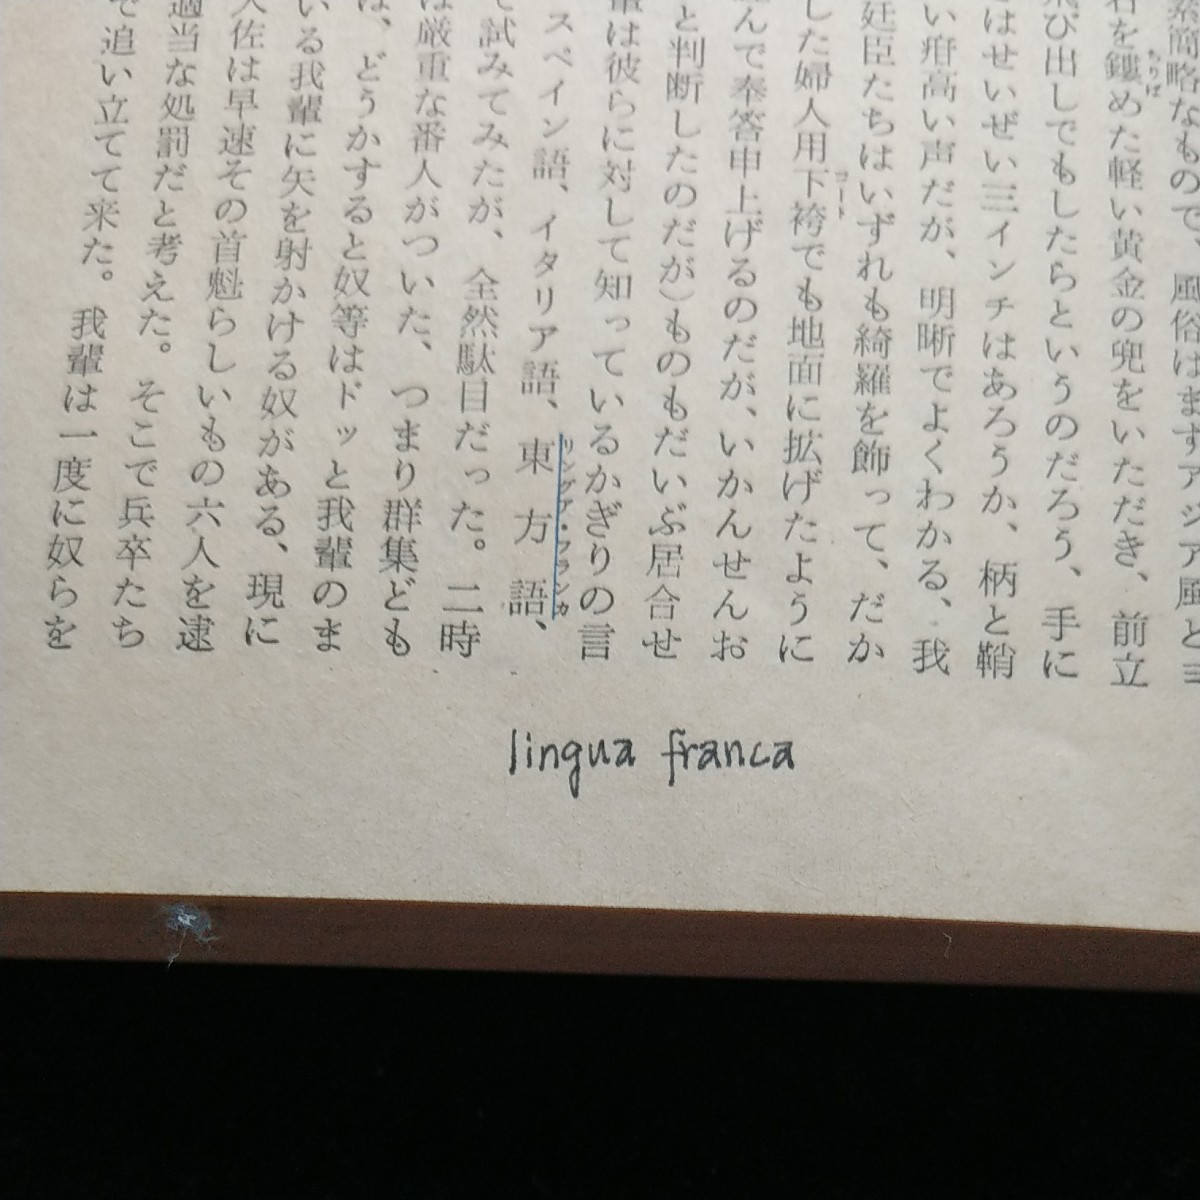 素簡略なもので、風俗はまずアジア風とヨ
石を鏤めた軽い黄金の兜をいただき、前立
飛び出しでもしたらというのだろう、手に
はせいぜい三インチはあろうか、柄と鞘
い疳高い声だが、明晰でよくわかる、我
廷臣たちはいずれも綺羅を飾って、だか
した婦人用下袴でも地面に拡げたように
んで奉答申上げるのだが、いかんせんお
と判断したのだが)ものもだいぶ居合せ
輩は彼らに対して知っているかぎりの言
スペイン語、イタリア語、東方語、
リングア・フランカ
て試みてみたが、全然駄目だった。二時
は厳重な番人がついた、つまり群集ども
は、どうかすると奴等はドッと我輩のま
いる我輩に矢を射かける奴がある、現に
大佐は早速その首魁らしいもの六人を逮
適当な処罰だと考えた。そこで兵卒たち
で追い立てて来た。我輩は一度に奴らを
lingua franca